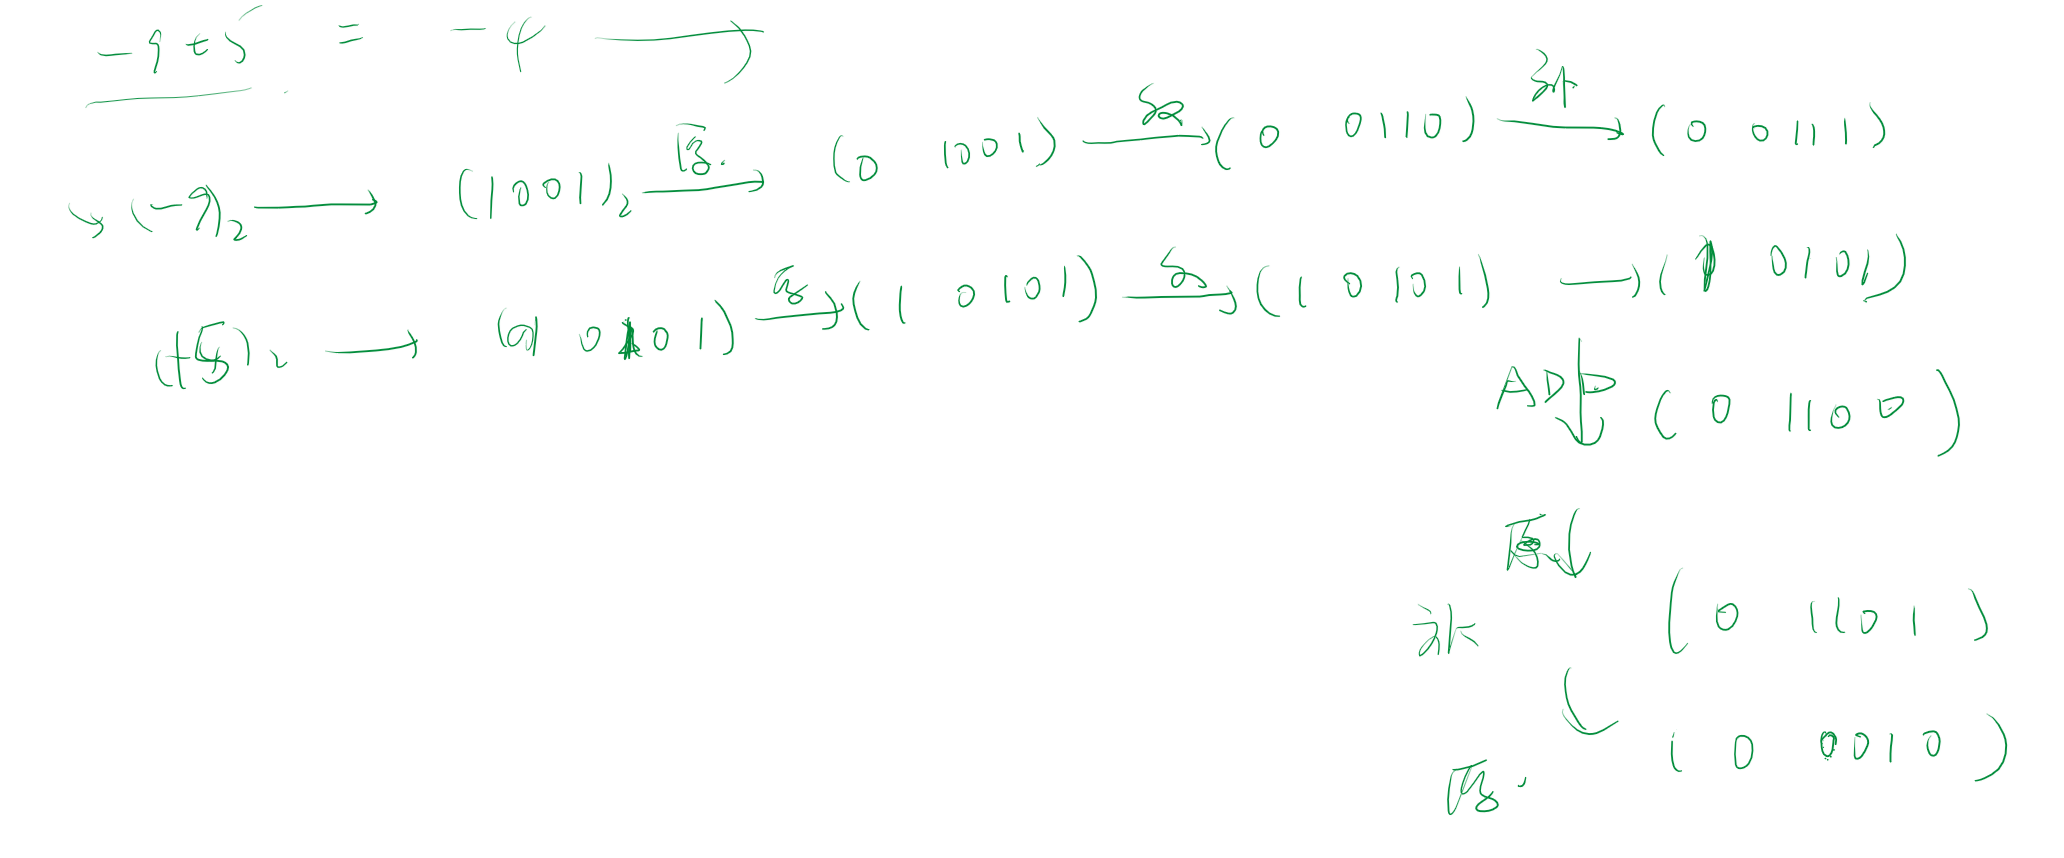 -9+5 = -4
(-9)₂ → (1001)₂ 原 → (0 1001) 反 → (0 0110) 补 → (0 0111)
(+5)₂ → ( 0 1 0 1) 原 → (1 0101) 反 → (1 0101) → (1 0101)
ADD (0 1100)
原
补 (0 1101)
原. (0 0010)